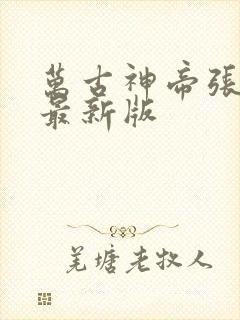 萬古神帝張
最新版
羌塘老牧人